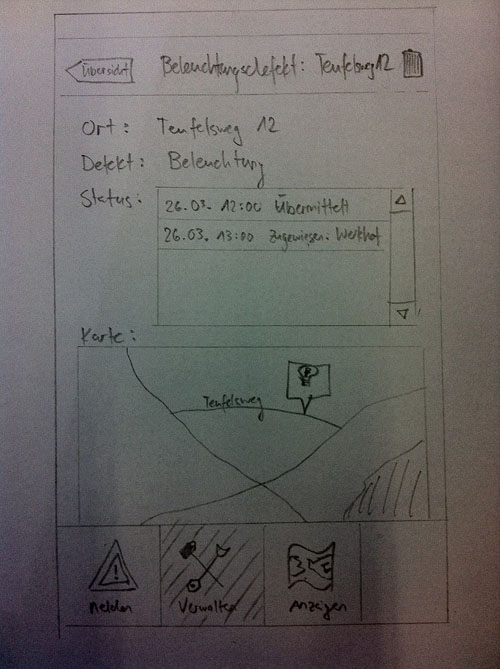 Übersicht
Beleuchtungsdefekt: Teufelsweg 12
Ort: Teufelsweg 12
Defekt: Beleuchtung
Status:
26.03. 12:00 Übermittelt
26.03. 13:00 Zugewiesen: Werkhof
Karte:
Teufelsweg
!
Melden
Verwalten
Anzeigen